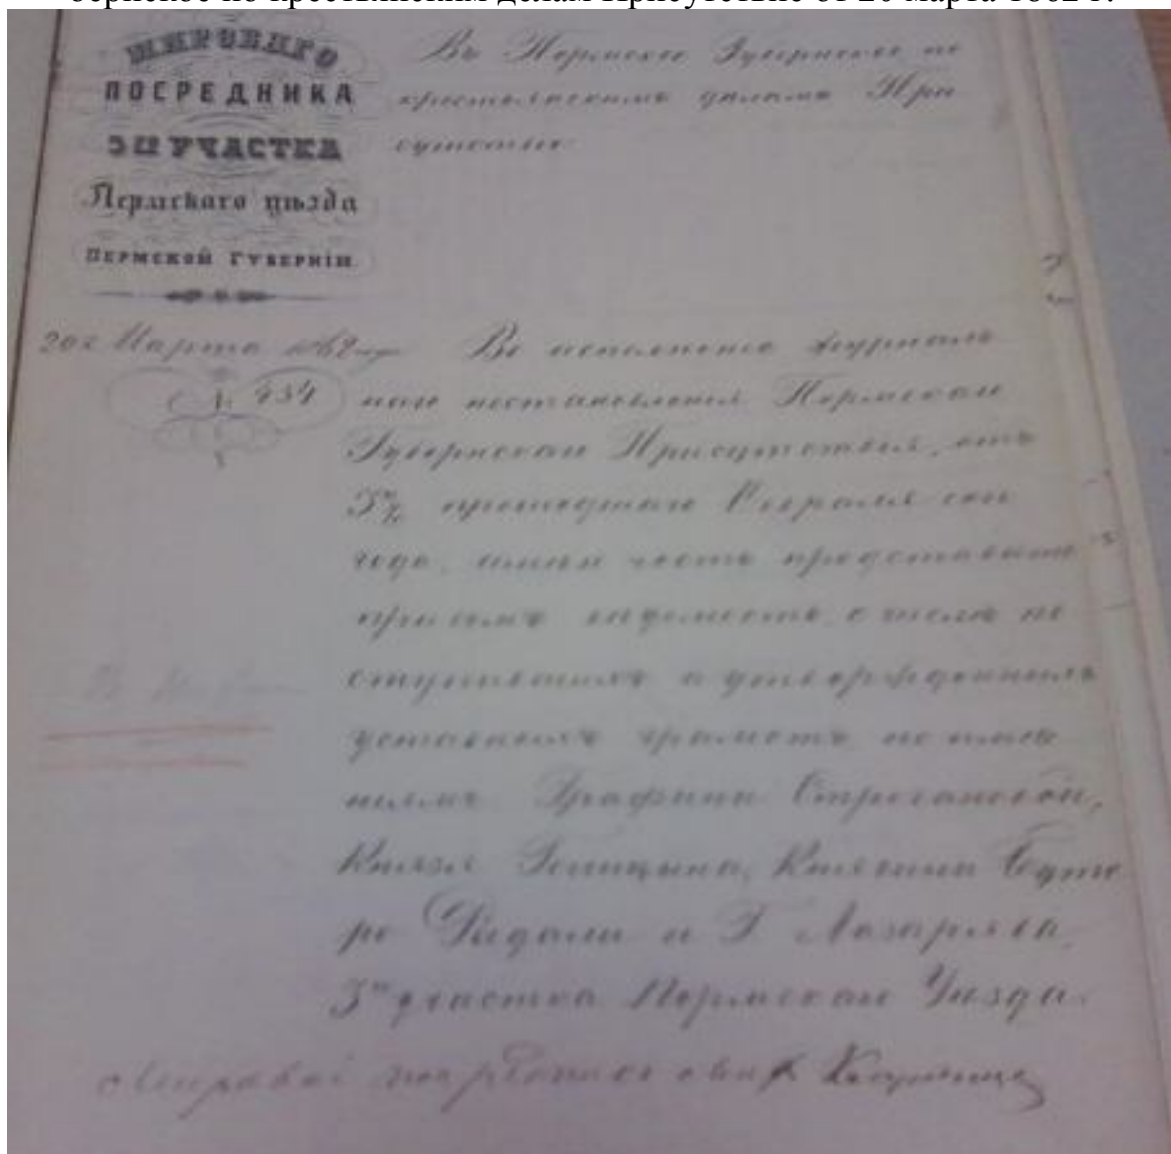 бернское по крестьянским делам Присутствие от 20 марта 1862 г.
МИРОВАГО
ПОСРЕДНИКА
3го УЧАСТКА
Пермскаго уѣзда
ПЕРМСКОЙ ГУБЕРНІИ
Въ Пермское Губернское по
крестьянскимъ дѣламъ При
сутствіе
20го Марта 1862 года
№ 434
Во исполненіе журналь
наго постановленія Пермскаго
Губернскаго Присутствія, отъ
прошедшаго Февраля сего
года, имѣю честь представить
при семъ вѣдомость о числѣ по
ступившихъ и утвержденныхъ
уставныхъ грамотъ по имѣ
ніямъ Графини Строгановой,
Князя Голицына, Княгини Буте
ро Радали и Г. Лазарева,
3го участка Пермскаго Уѣзда.
Мировой посредникъ